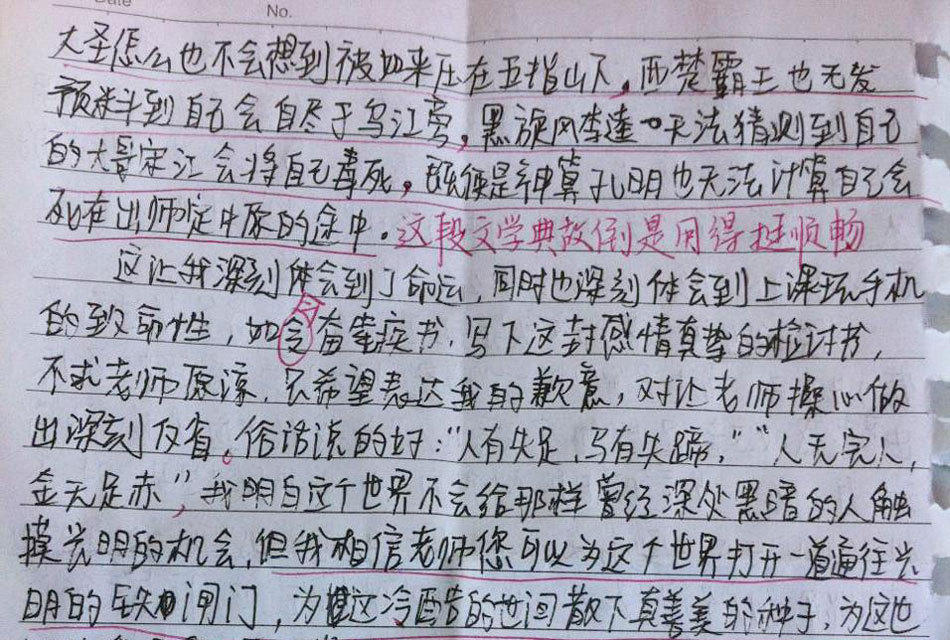 No.
大圣怎么也不会想到被如来压在五指山下，西楚霸王也无发
预料到自己会自尽于乌江旁，黑旋风李逵也无法猜测到自己
的大哥宋江会将自己毒死，既便是神算孔明也无法计算自己会
死在出师定中原的途中。这段文学典故倒是用得挺顺畅
这让我深刻体会到了命运，同时也深刻体会到上课玩手机
的致命性，如今
会奋笔疾书，写下这封感情真挚的检讨书，
不求老师原谅，只希望表达我的歉意，对让老师操心做
出深刻反省。俗话说的好："人有失足，马有失蹄，""人无完人，
金无足赤"，我明白这个世界不会给那样曾经深处黑暗的人触
摸光明的机会，但我相信老师您可以为这个世界打开一道通往光
明的 闸门，为这冷酷的世间散下真善美的种子，为这世